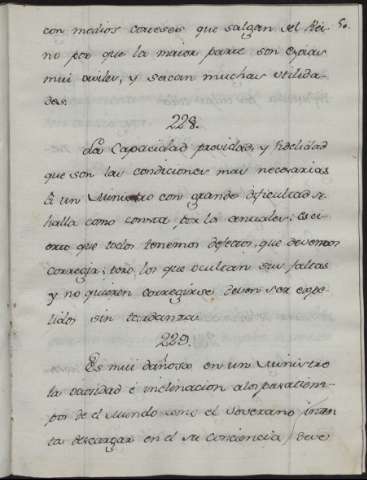 50.
con medios corteses que salgan del Rei-
no por que la maior parte son espias
mui utiles, y sacan muchas utilida-
des.
228.
La Capacidad providad, y fidelidad
que son las condiciones mas necesarias
à un Ministro con grande dificultad se
halla como consta por los annales; es ci-
erto que todos tenemos defectos, que devemos
corregir; pero, los que ocultan sus faltas
y no quieren corregirse deven ser expe-
lidos sin tardanza
229.
Es mui dañosa en un Ministro
la ociosidad è inclinacion alos pasatiem-
pos de el Mundo como el Soverano inten
ta descargar en el su Conciencia, deve